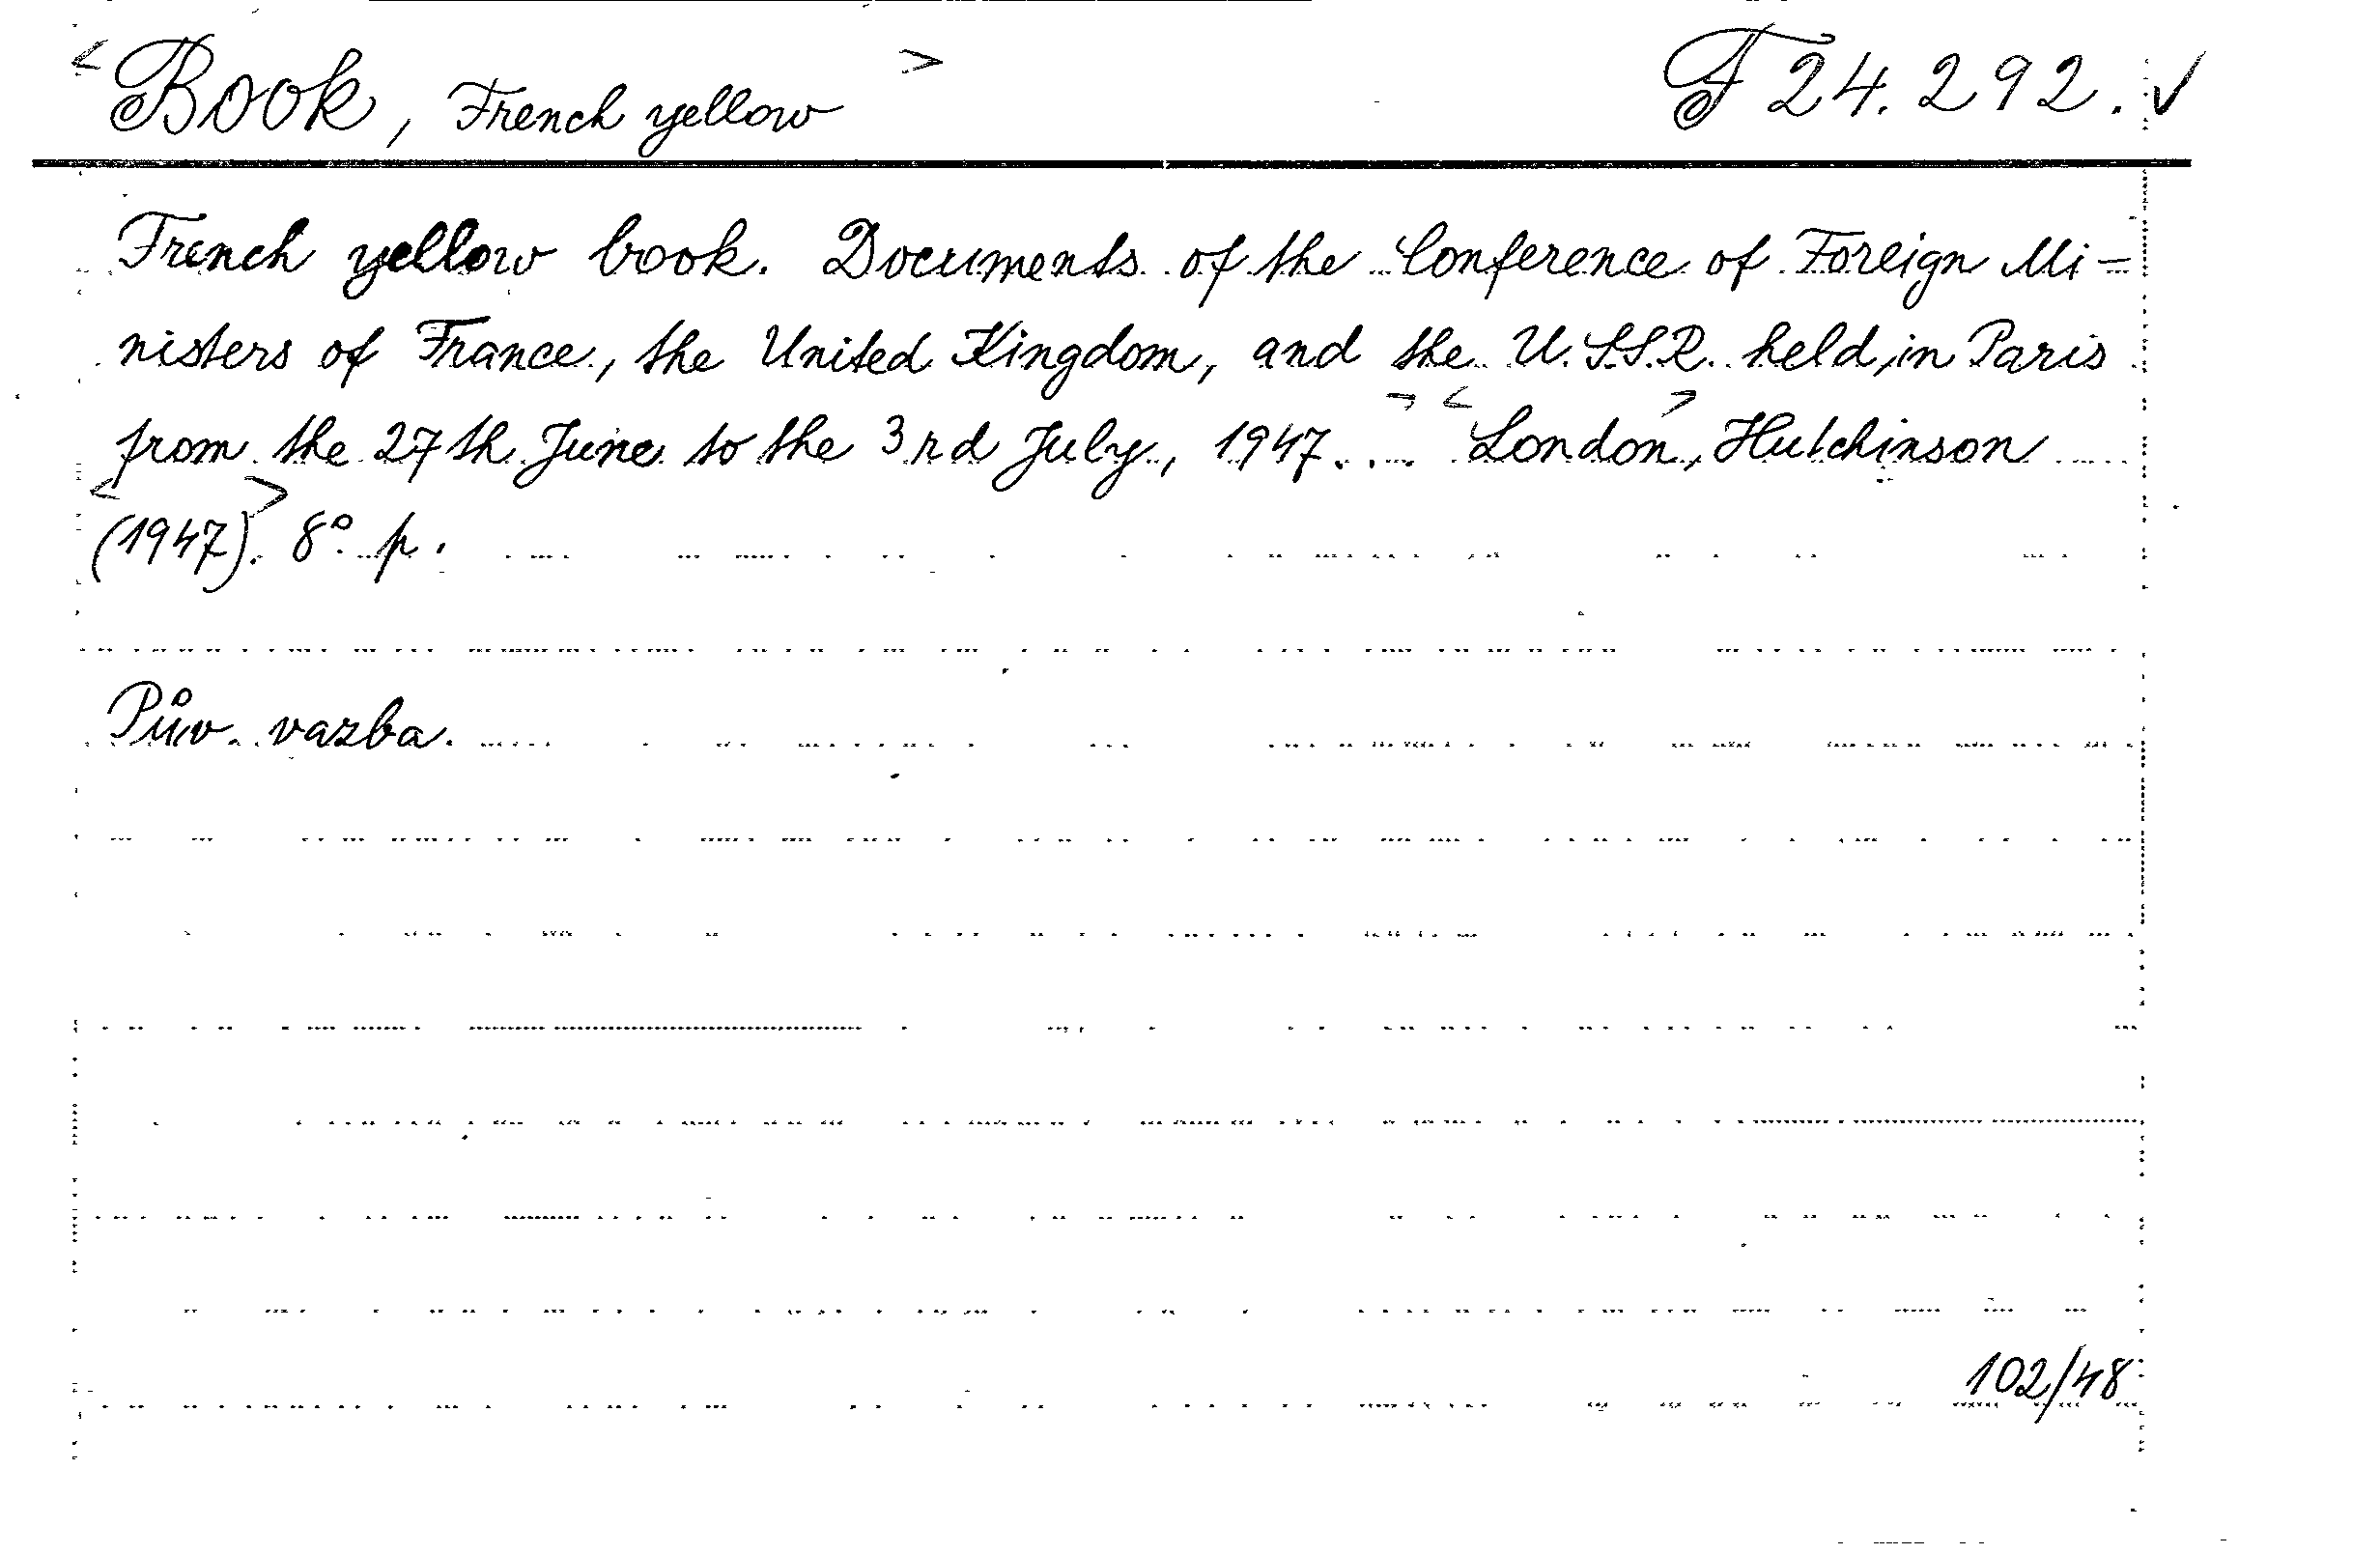 <Book, French yellow> F 24.292. ✓
French yellow book. Documents of the Conference of Foreign Mi-
nisters of France, the United Kingdom, and the U.S.S.R. held in Paris
from the 27th June to the 3rd July, 1947... <London>, Hutchinson
<(1947)>. 8° p.
Pův. vazba.
102/48